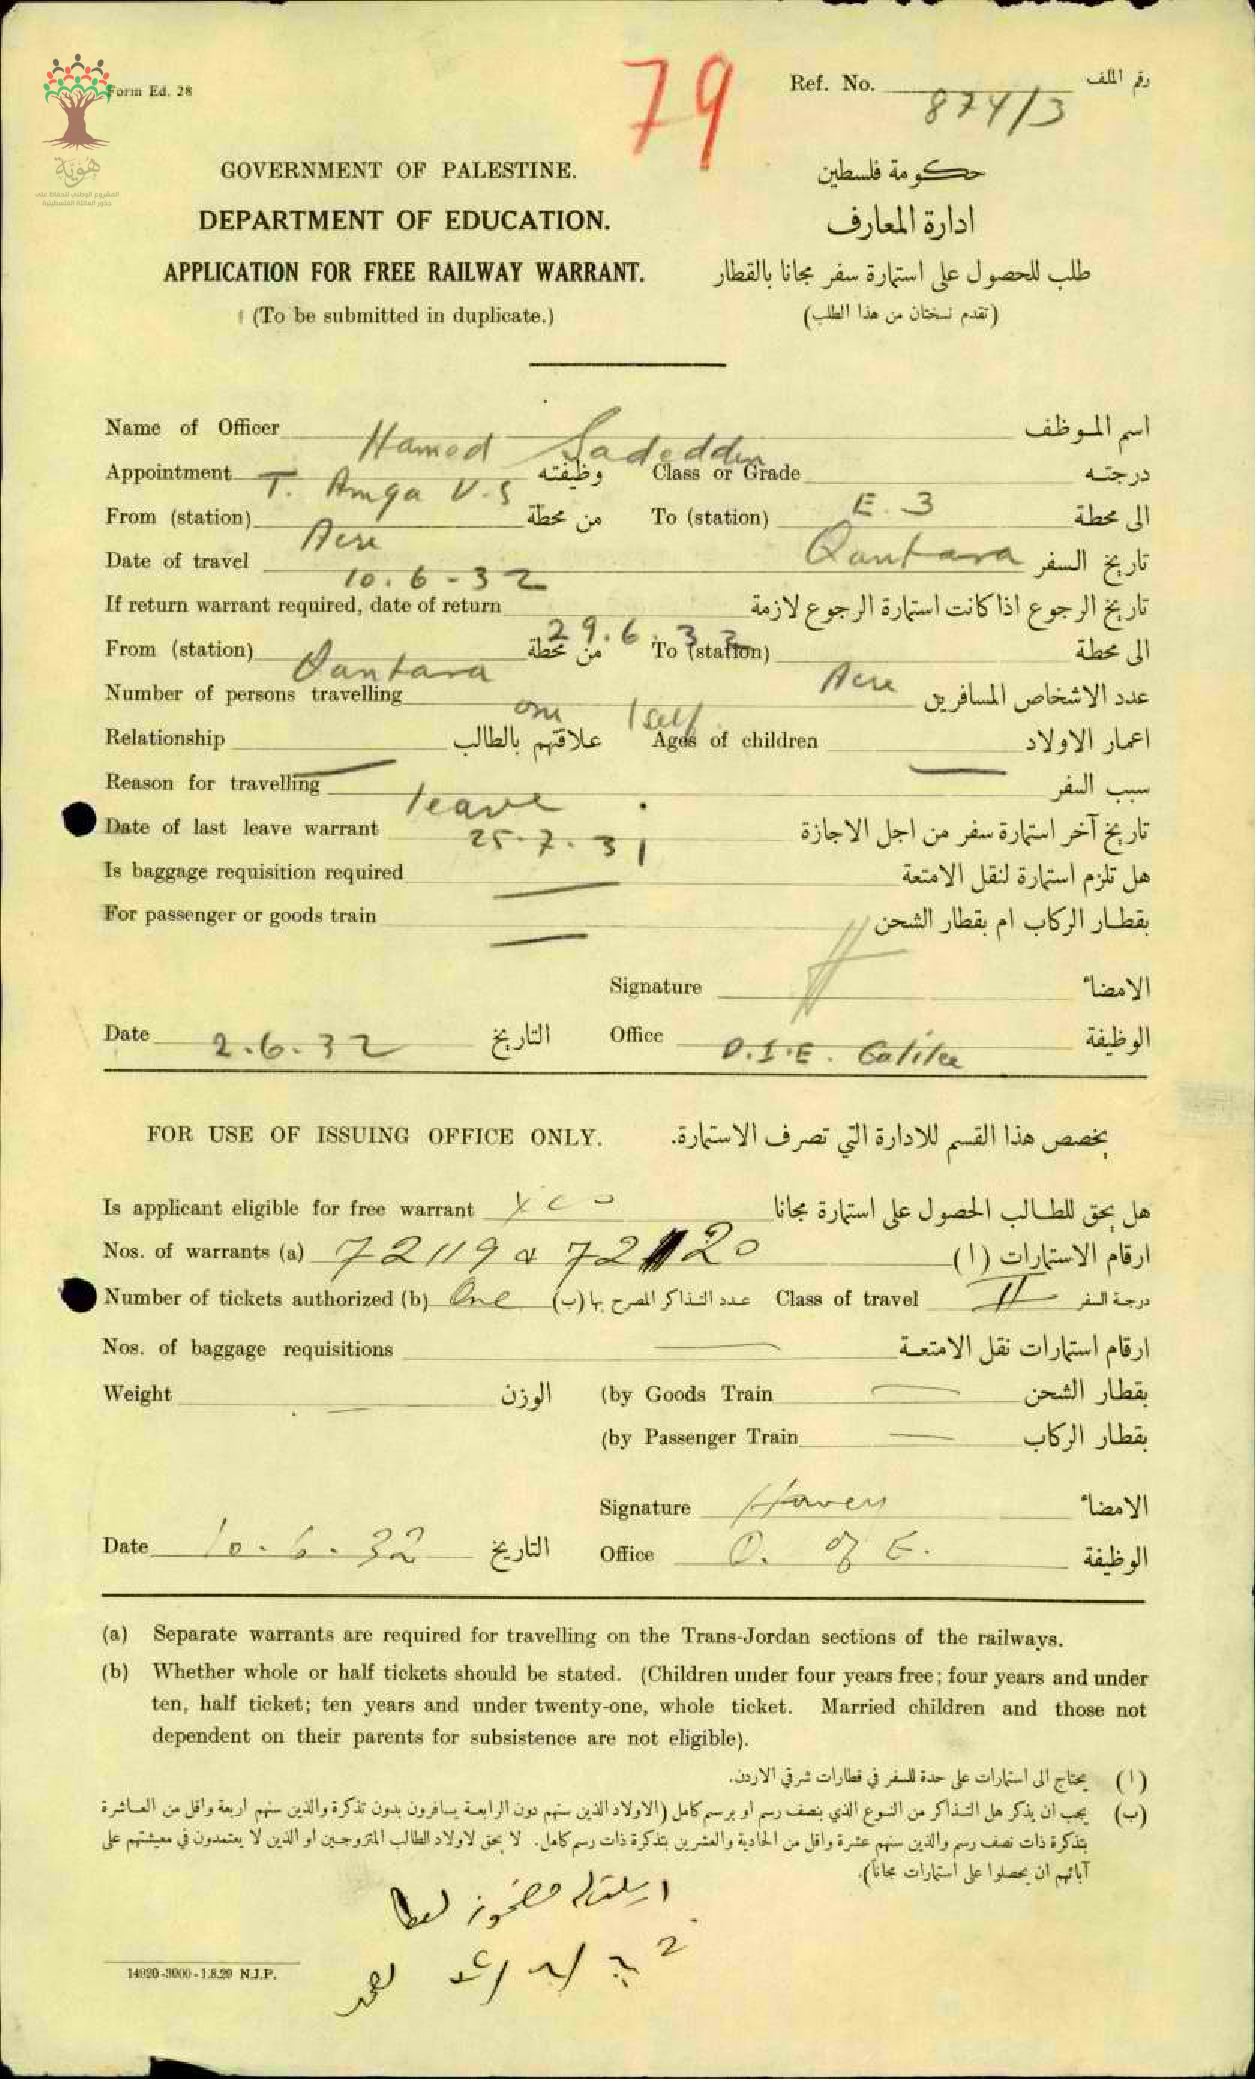 Form Ed. 28
79
Ref. No. 874/3 رقم الملف
هُوِيَّة
المشروع الوطني للحفاظ على
جذور العائلة الفلسطينية
GOVERNMENT OF PALESTINE. حكومة فلسطين
DEPARTMENT OF EDUCATION. ادارة المعارف
APPLICATION FOR FREE RAILWAY WARRANT. طلب للحصول على استمارة سفر مجانا بالقطار
(To be submitted in duplicate.) (تقدم نسختان من هذا الطلب)
Name of Officer Hamed Sadeddin اسم الموظف
Appointment T. Amqa V.S وظيفته Class or Grade E. 3 درجته
From (station) Acre من محطة To (station) Qantara الى محطة
Date of travel 10.6-32 تاريخ السفر
If return warrant required, date of return 29.6.32 تاريخ الرجوع اذا كانت استمارة الرجوع لازمة
From (station) Qantara من محطة To (station) Acre الى محطة
Number of persons travelling one 1 self عدد الاشخاص المسافرين
Relationship — علاقتهم بالطالب Ages of children — اعمار الاولاد
Reason for travelling leave سبب السفر
Date of last leave warrant 25.7.31 تاريخ آخر استمارة سفر من اجل الاجازة
Is baggage requisition required — هل تلزم استمارة لنقل الامتعة
For passenger or goods train — بقطار الركاب ام بقطار الشحن
Signature الامضاء
Date 2.6.32 التاريخ Office D.I.E. Galilee الوظيفة
FOR USE OF ISSUING OFFICE ONLY. يخصص هذا القسم للادارة التي تصرف الاستمارة.
Is applicant eligible for free warrant Yes هل يحق للطالب الحصول على استمارة مجانا
Nos. of warrants (a) 72119 & 72120 ارقام الاستمارات (ا)
Number of tickets authorized (b) One عدد التذاكر المصرح بها (ب) Class of travel II درجة السفر
Nos. of baggage requisitions — ارقام استمارات نقل الامتعة
Weight — الوزن (by Goods Train — بقطار الشحن
(by Passenger Train — بقطار الركاب
Signature الامضاء
Date 10.6.32 التاريخ Office D. of E. الوظيفة
(a) Separate warrants are required for travelling on the Trans-Jordan sections of the railways.
(b) Whether whole or half tickets should be stated. (Children under four years free; four years and under
ten, half ticket; ten years and under twenty-one, whole ticket. Married children and those not
dependent on their parents for subsistence are not eligible).
(ا) يحتاج الى استمارات على حدة للسفر في قطارات شرقي الاردن.
(ب) يجب ان يذكر هل التذاكر من النوع الذي بنصف رسم او برسم كامل (الاولاد الذين سنهم دون الرابعة يسافرون بدون تذكرة والذين سنهم اربعة واقل من العاشرة
بتذكرة ذات نصف رسم والذين سنهم عشرة واقل من الحادية والعشرين بتذكرة ذات رسم كامل. لا يحق لاولاد الطالب المتزوجين او الذين لا يعتمدون في معيشتهم على
آبائهم ان يحصلوا على استمارات مجاناً).
14920-3000-1.8.29 N.J.P.